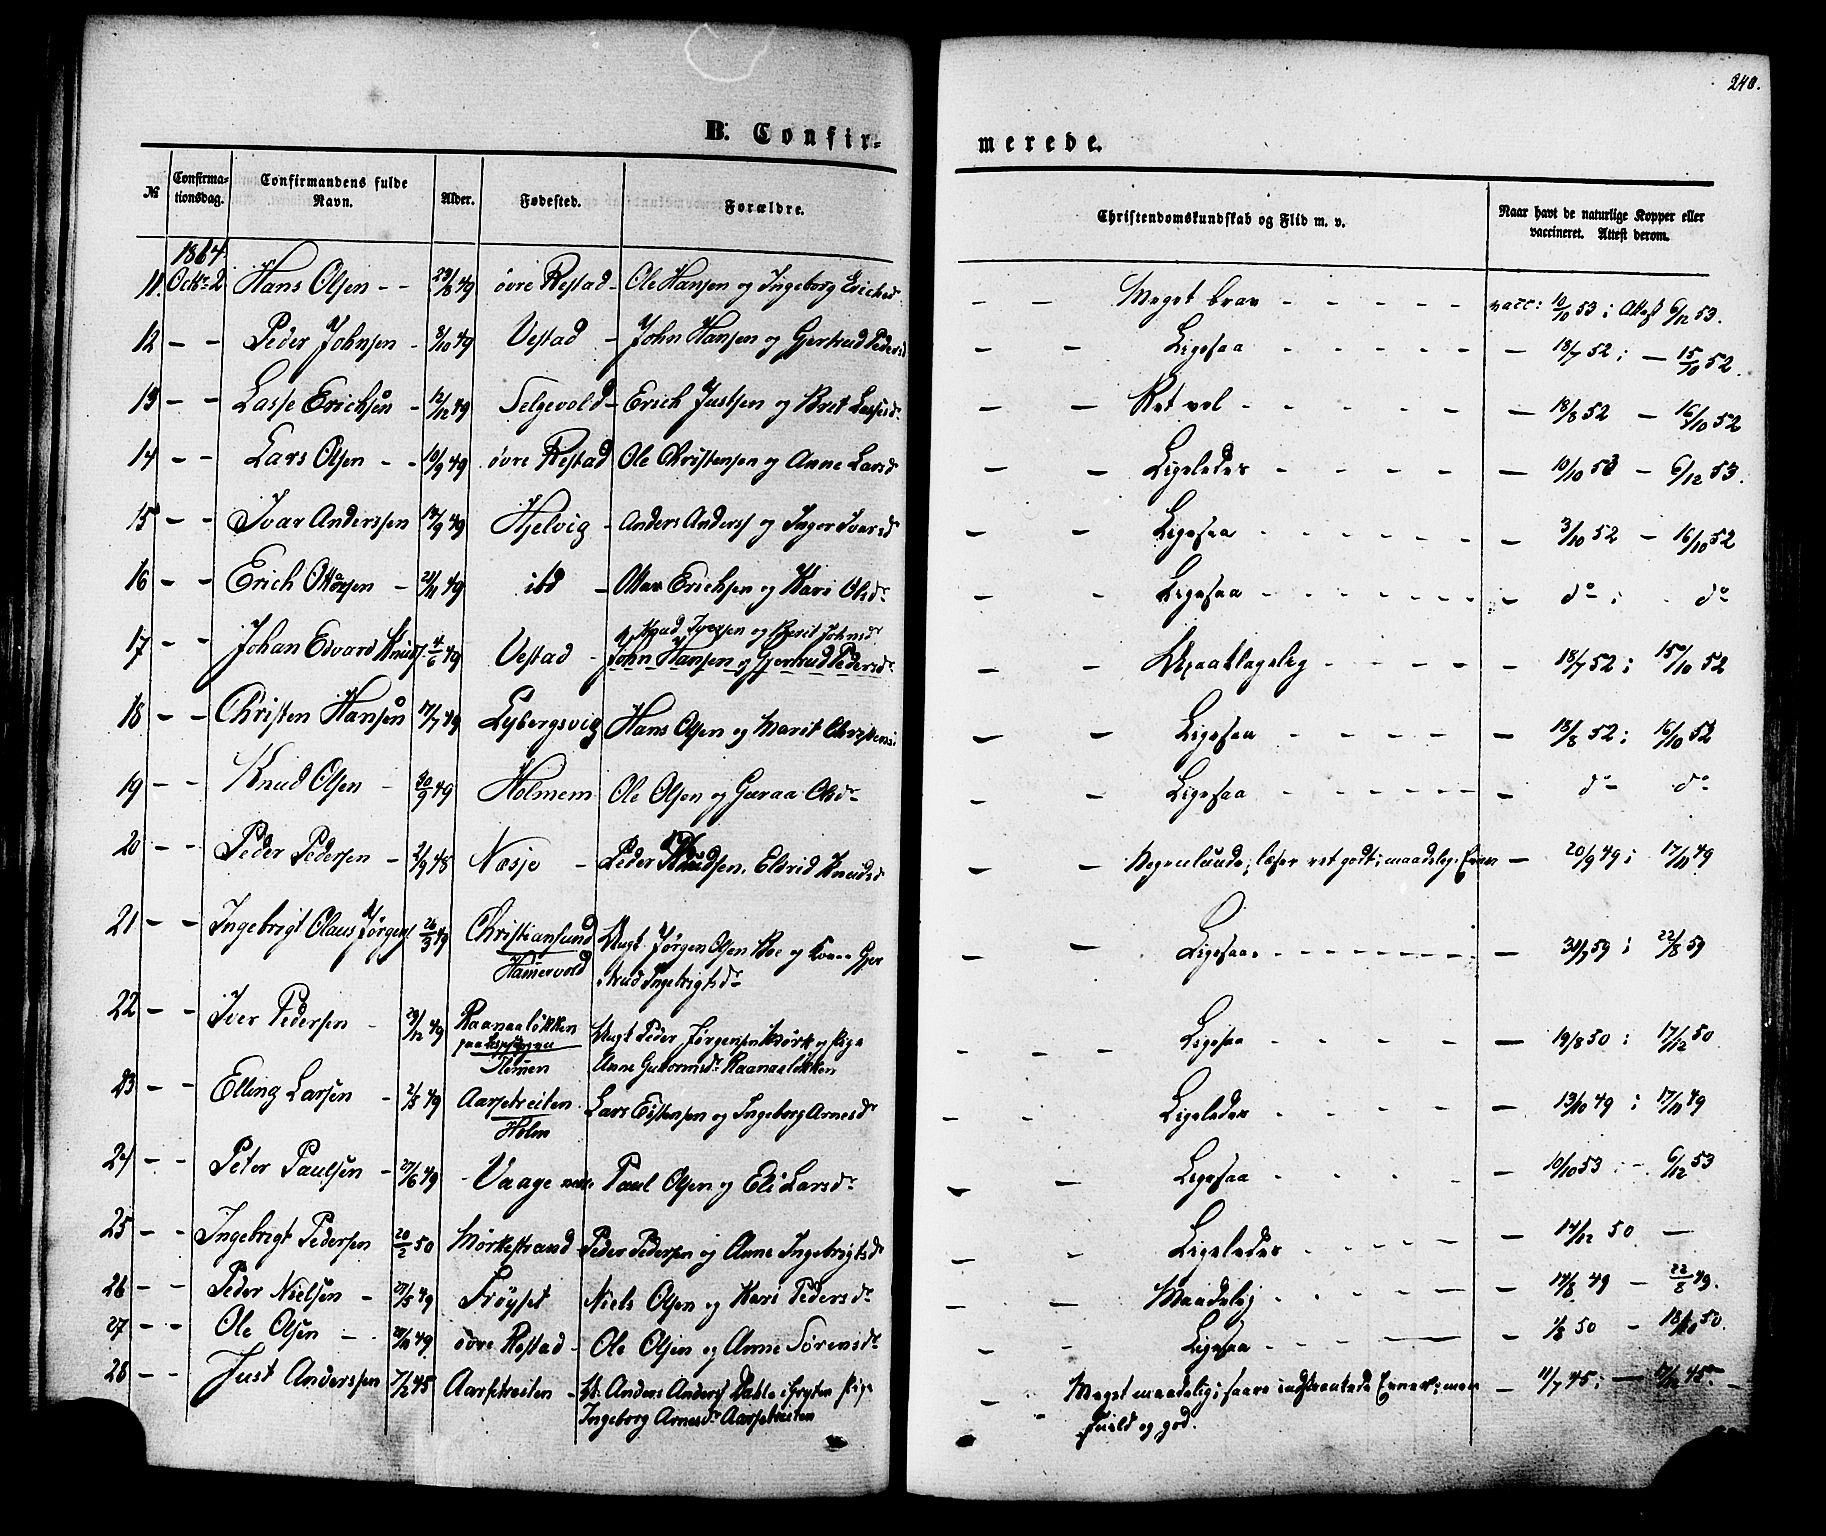 240.
B. Confir-
merede.
№ Confirma-tionsdag. Confirmandens fulde Navn. Alder. Fødested. Forældre. Christendomskundskab og Flid m. v. Naar havt de naturlige Kopper eller vaccineret. Attest derom.
1864
11. Octbr 2 Hans Olsen - - 29/8 49 øvre Restad - Ole Hansen og Ingeborg Erichsd. - - Meget brav - - - - - vacc: 10/10 53 ; Attest 6/12 53.
12 - - Peder Johnsen - 3/10 49 Vestad - John Hansen og Gjertrud Pedersd - - Ligesaa - - - - - - 18/7 52 ; - 15/10 52.
13 - - Lasse Erichsen - 12/12 49 Selgevold - Erich Justsen og Brit Lassesd. - - Ret vel - - - - - - 18/8 52 - 16/10 52
14 - - Lars Olsen - - 10/9 49 øvre Restad Ole Christensen og Anne Larsd - - Ligeledes - - - - - 10/10 53 - 6/12 53.
15 - - Ivar Anderssen 19/9 49 Hjelvig - Anders Anderss og Inger Ivarsd - - Ligesaa - - - - - - - 3/10 52 - 16/10 52
16 - - Erich Ottersen - 21/11 49 ibd - Ottar Erichsen og Kari Olsdr - - Ligesaa - - - - - - - do ; - do
17 - - Johan Edvard Knuds. 4/6 49 Vestad - Knud Iversen og Berit Johnsdr
John Hansen og Gjertrud Pedersdr - - Maadelig - - - - - 18/7 52 ; 15/10 52
18 - - Christen Hansen 17/7 49 Lybergsvig Hans Olsen og Marit Christensd - - Ligesaa - - - - - 18/8 52 ; 16/10 52
19 - - Knud Olsen - 30/9 49 Holmem Ole Olsen og Guraa Olsdr - - Ligesaa - - - - - - - do do
20 - - Peder Pedersen - 2/9 48 Næsje - Peder Knudsen, Eldrid Knudsd - - læser ret godt; maadelig Evne - 20/9 49 ; 17/11 49
21 - - Ingebrigt Olaus Jørgens 26/3 49 Christiansund Ungk. Jørgen Olsen Boe og Gjer
Hamervold trud Ingebrigtsdr - - Ligesaa - - - - - - - 31/7 59 ; 22/8 59
22 - - Iver Pedersen - 29/12 49 Raanaaløkken Ungk Peder Jørgensen Mørk og Pige
Hemen Anne Guttormsdr Raanaaløkken - - Ligesaa - - - - - 19/8 50 ; 17/12 50
23 - - Elling Larsen - 2/3 49 Aarsetreiten Lars Eistensen og Ingeborg Arnesdr
Holm - - Ligeledes - - - - - 13/10 49 ; 17/11 49
24 - - Peter Paulsen - 27/6 49 - Vaage nedre Paul Olsen og Eli Larsdr - - Ligesaa - - - - - 10/10 53 ; - 6/12 53
25 - - Ingebrigt Pedersen 20/2 50 Mørkestrand Peder Pedersen og Anne Ingebrigtsdr - - Ligeledes - - - - - 14/12 50 -
26 - - Peder Nielsen - 21/5 49 Frøyset Niels Olsen og Kari Pedersdr - - Maadelig - - - - 14/8 49 - 22/8 49.
27 - - Ole Olsen - 21/12 49. øvre Restad - Ole Olsen og Anne Sørensdr - - Ligesaa - - - - 1/8 50 - 18/10 50.
28 - - Just Anderssen 7/2 45 Aarsetreiten - U. Anders Anders Dahle i Grytten Pige
Ingeborg Arnesdr Aarsetreiten - - Meget maadelig; saare indskrænkede Evner; men - 11/7 45 ; - 17/12 45 -
snild og god.